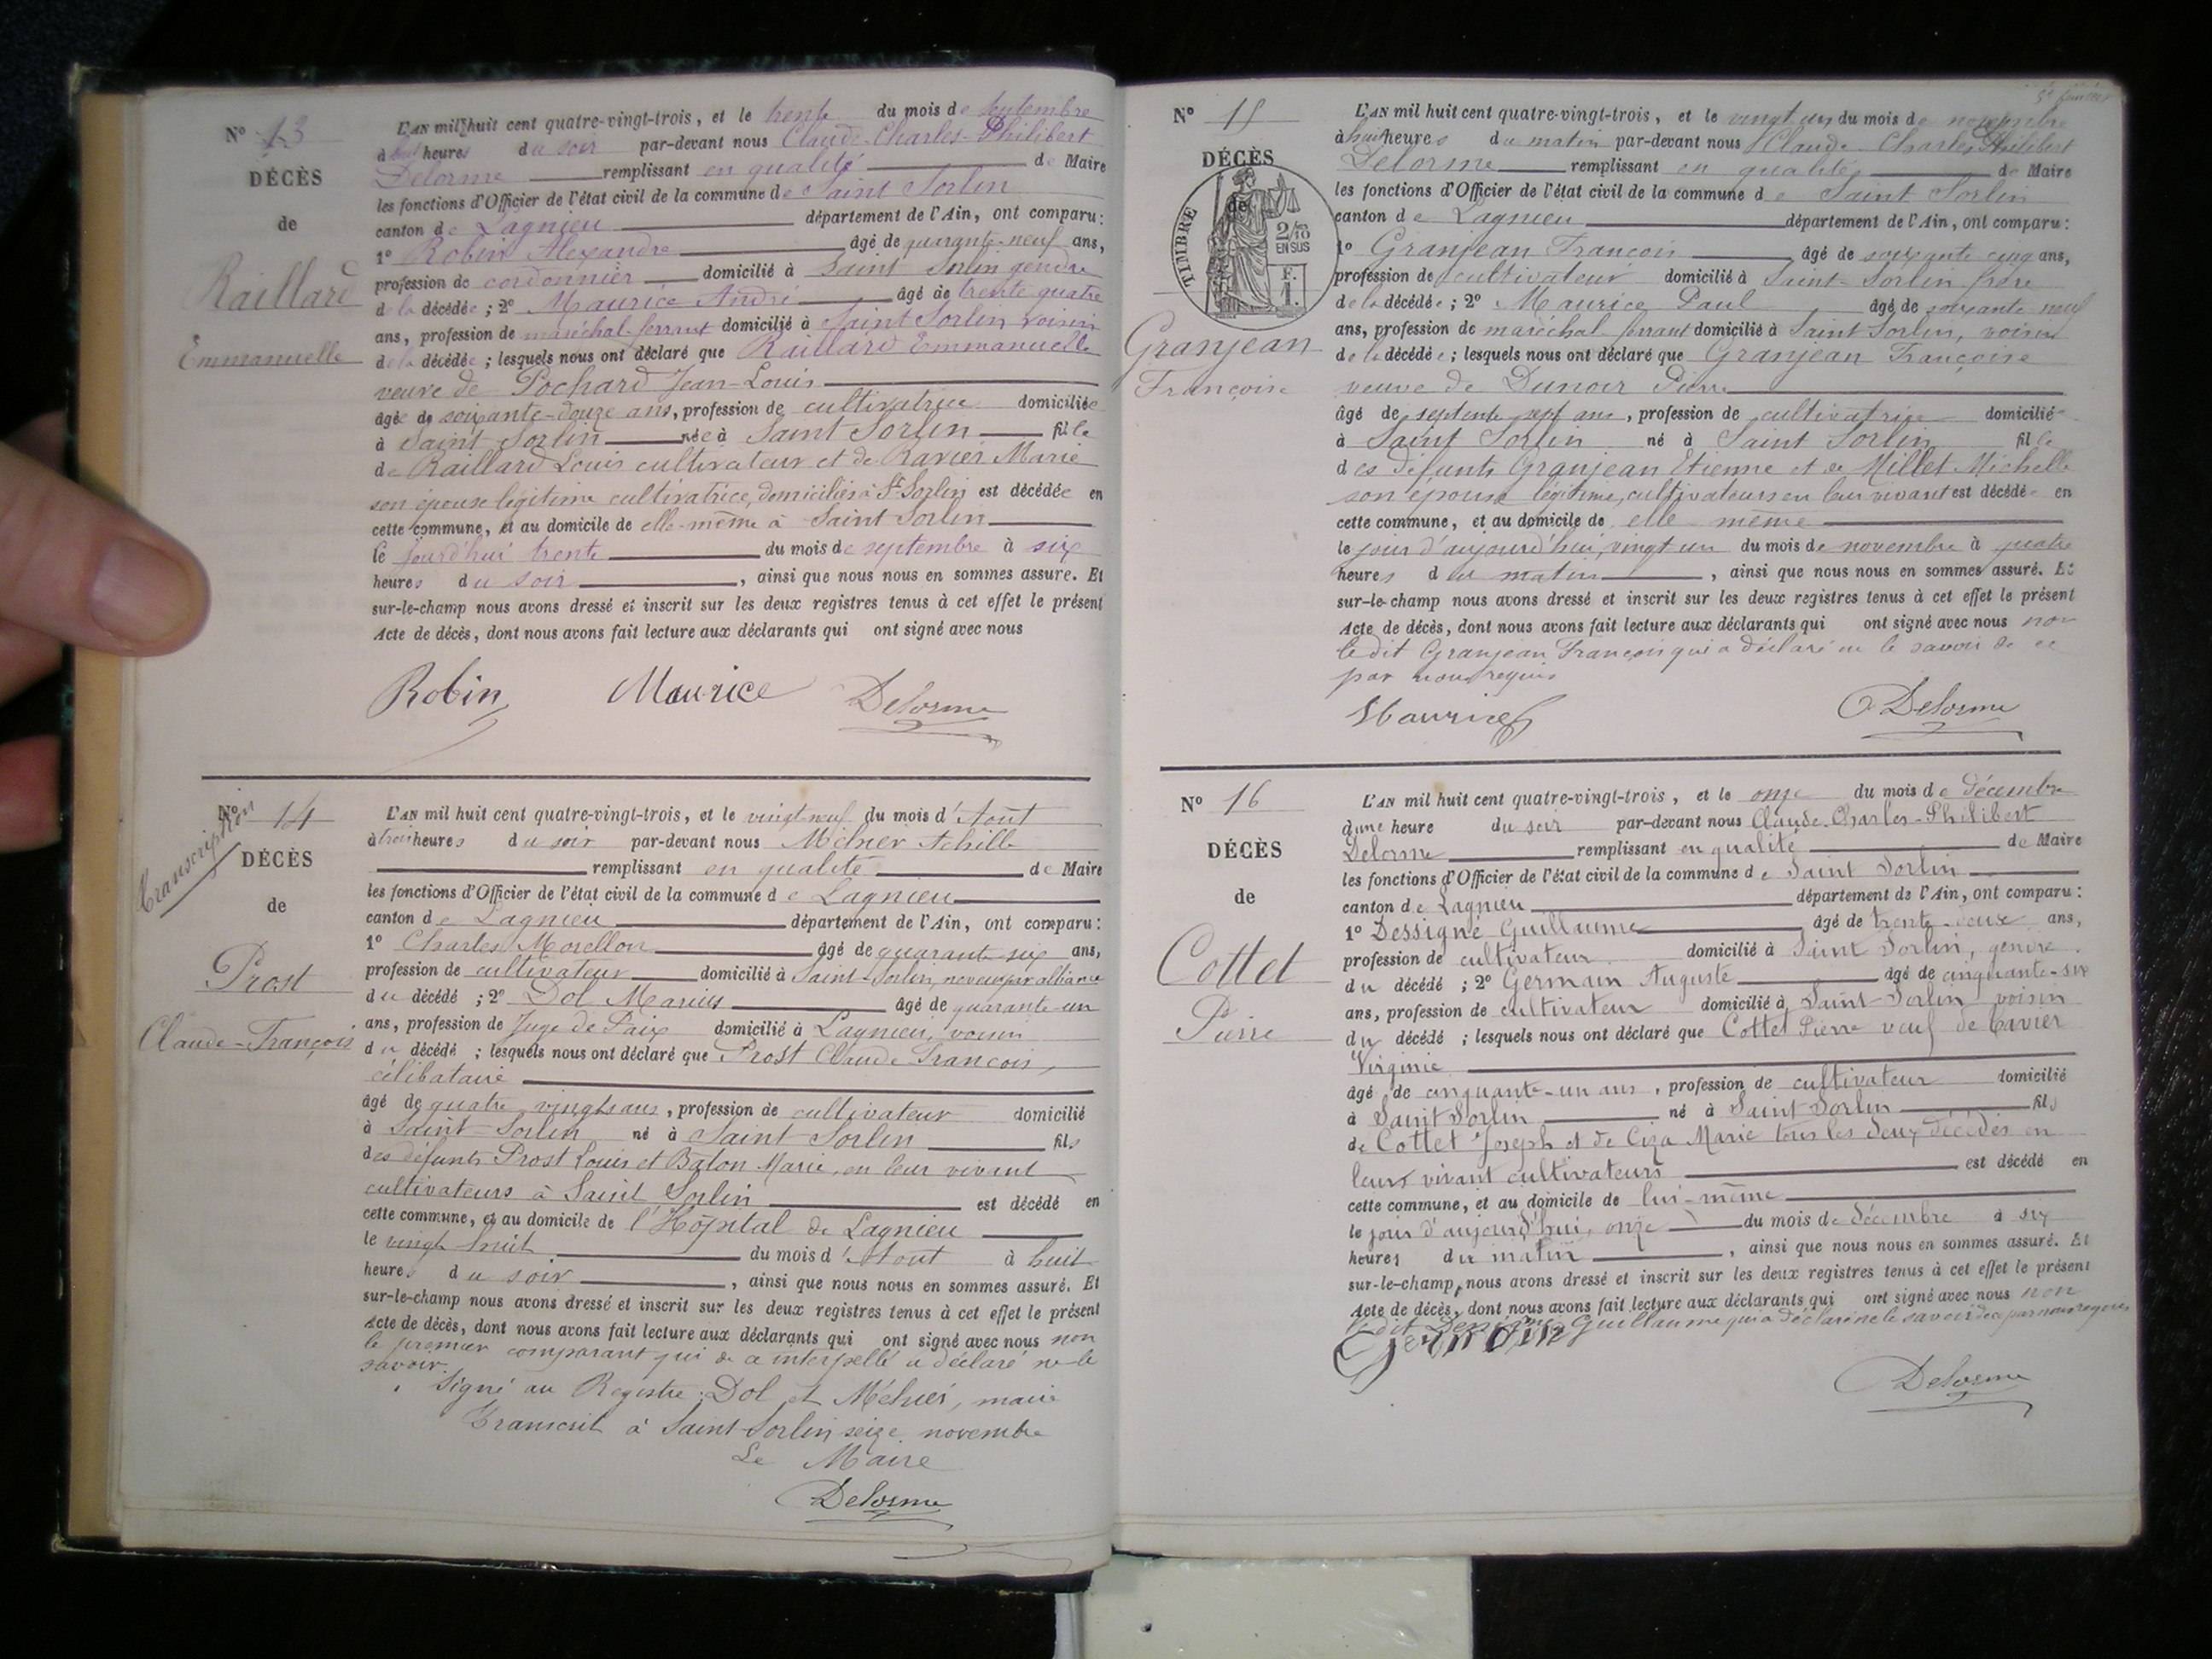 Nº 13
DÉCÈS
de
Raillard
Emmanuelle
L'AN mil huit cent quatre-vingt-trois, et le trente du mois de septembre
à huit heures du soir par-devant nous Claude-Charles-Philibert
Delorme remplissant en qualité de Maire
les fonctions d'Officier de l'état civil de la commune de Saint Sorlin
canton de Lagnieu département de l'Ain, ont comparu:
1º Robin Alexandre âgé de quarante-neuf ans,
profession de cordonnier domicilié à Saint Sorlin gendre
de la décédée; 2º Maurice André âgé de trente quatre
ans, profession de maréchal-ferrant domicilié à Saint Sorlin voisin
de la décédée; lesquels nous ont déclaré que Raillard Emmanuelle
veuve de Pochard Jean-Louis
âgée de soixante-douze ans, profession de cultivatrice domiciliée
à Saint Sorlin née à Saint Sorlin fille
de Raillard Louis cultivateur et de Ravier Marie
son épouse légitime cultivatrice, domiciliés à St Sorlin est décédée en
cette commune, et au domicile de elle-même à Saint Sorlin
le jourd'hui trente du mois de septembre à six
heures du soir, ainsi que nous nous en sommes assuré. Et
sur-le-champ nous avons dressé et inscrit sur les deux registres tenus à cet effet le présent
Acte de décès, dont nous avons fait lecture aux déclarants qui ont signé avec nous
Robin Maurice Delorme
Transcription
Nº 14
DÉCÈS
de
Prost
Claude-François
L'AN mil huit cent quatre-vingt-trois, et le vingt-neuf du mois d'Août
à trois heures du soir par-devant nous Méhier Achille
remplissant en qualité de Maire
les fonctions d'Officier de l'état civil de la commune de Lagnieu
canton de Lagnieu département de l'Ain, ont comparu:
1º Charles Morellon âgé de quarante-six ans,
profession de cultivateur domicilié à Saint-Sorlin, neveu par alliance
du décédé; 2º Dol Marius âgé de quarante-un
ans, profession de Juge de Paix domicilié à Lagnieu, voisin
du décédé; lesquels nous ont déclaré que Prost Claude François,
célibataire
âgé de quatre vingts ans, profession de cultivateur domicilié
à Saint-Sorlin né à Saint Sorlin fils
des défunts Prost Louis et Baton Marie, en leur vivant
cultivateurs à Saint Sorlin est décédé en
cette commune, et au domicile de l'Hôpital de Lagnieu
le vingt huit du mois d'Aout à huit
heures du soir, ainsi que nous nous en sommes assuré. Et
sur-le-champ nous avons dressé et inscrit sur les deux registres tenus à cet effet le présent
Acte de décès, dont nous avons fait lecture aux déclarants qui ont signé avec nous non
le premier comparant qui de ce interpellé a déclaré ne le
savoir.
Signé au Registre: Dol et Méhier, maire
Transcrit à Saint-Sorlin seize novembre
Le Maire
Delorme
Nº 15
DÉCÈS
de
TIMBRE
2/10
EN SUS
F.
1.
Granjean
Françoise
L'AN mil huit cent quatre-vingt-trois, et le vingt un du mois de novembre
à huit heures du matin par-devant nous Claude Charles Philibert
Delorme remplissant en qualité de Maire
les fonctions d'Officier de l'état civil de la commune de Saint Sorlin
canton de Lagnieu département de l'Ain, ont comparu:
1º Granjean François âgé de soixante cinq ans,
profession de cultivateur domicilié à Saint-Sorlin frère
de la décédée; 2º Maurice Paul âgé de soixante neuf
ans, profession de maréchal ferrant domicilié à Saint Sorlin, voisin
de la décédée; lesquels nous ont déclaré que Granjean Françoise
veuve de Dunoir Pierre
âgé de septente sept ans, profession de cultivatrice domicilié
à Saint Sorlin né à Saint Sorlin fille
des défunts Granjean Etienne et de Millet Michelle
son épouse légitime, cultivateurs en leur vivant est décédée en
cette commune, et au domicile de elle même
le jour d'aujourd'hui, vingt un du mois de novembre à quatre
heures du matin, ainsi que nous nous en sommes assuré. Et
sur-le-champ nous avons dressé et inscrit sur les deux registres tenus à cet effet le présent
Acte de décès, dont nous avons fait lecture aux déclarants qui ont signé avec nous non
le dit Granjean François qui a déclaré ne le savoir de ce
par nous requis
Maurice Delorme
Nº 16
DÉCÈS
de
Cottet
Pierre
L'AN mil huit cent quatre-vingt-trois, et le onze du mois de décembre
à une heure du soir par-devant nous Claude-Charles-Philibert
Delorme remplissant en qualité de Maire
les fonctions d'Officier de l'état civil de la commune de Saint Sorlin
canton de Lagnieu département de l'Ain, ont comparu:
1º Dessigne Guillaume âgé de trente-deux ans,
profession de cultivateur domicilié à Saint Sorlin, gendre
du décédé; 2º Germain Auguste âgé de cinquante-six
ans, profession de cultivateur domicilié à Saint-Sorlin voisin
du décédé; lesquels nous ont déclaré que Cottet Pierre veuf de
Virginie
âgé de cinquante-un ans, profession de cultivateur domicilié
à Saint Sorlin né à Saint Sorlin fils
de Cottet Joseph et de Ciza Marie tous les deux décédés en
leurs vivant cultivateurs est décédé en
cette commune, et au domicile de lui-même
le jour d'aujourd'hui, onze du mois de décembre à six
heures du matin, ainsi que nous nous en sommes assuré. Et
sur-le-champ, nous avons dressé et inscrit sur les deux registres tenus à cet effet le présent
Acte de décès, dont nous avons fait lecture aux déclarants qui ont signé avec nous non
le dit Guillaume qui a déclaré ne le savoir de ce par nous requis
Germain
Delorme